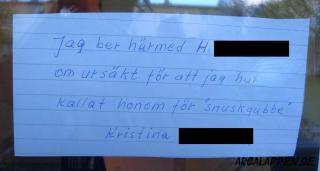 Jag ber härmed H.
om ursäkt för att jag har
kallat honom för "snuskgubbe"
Kristina
ARGALAPPEN.SE